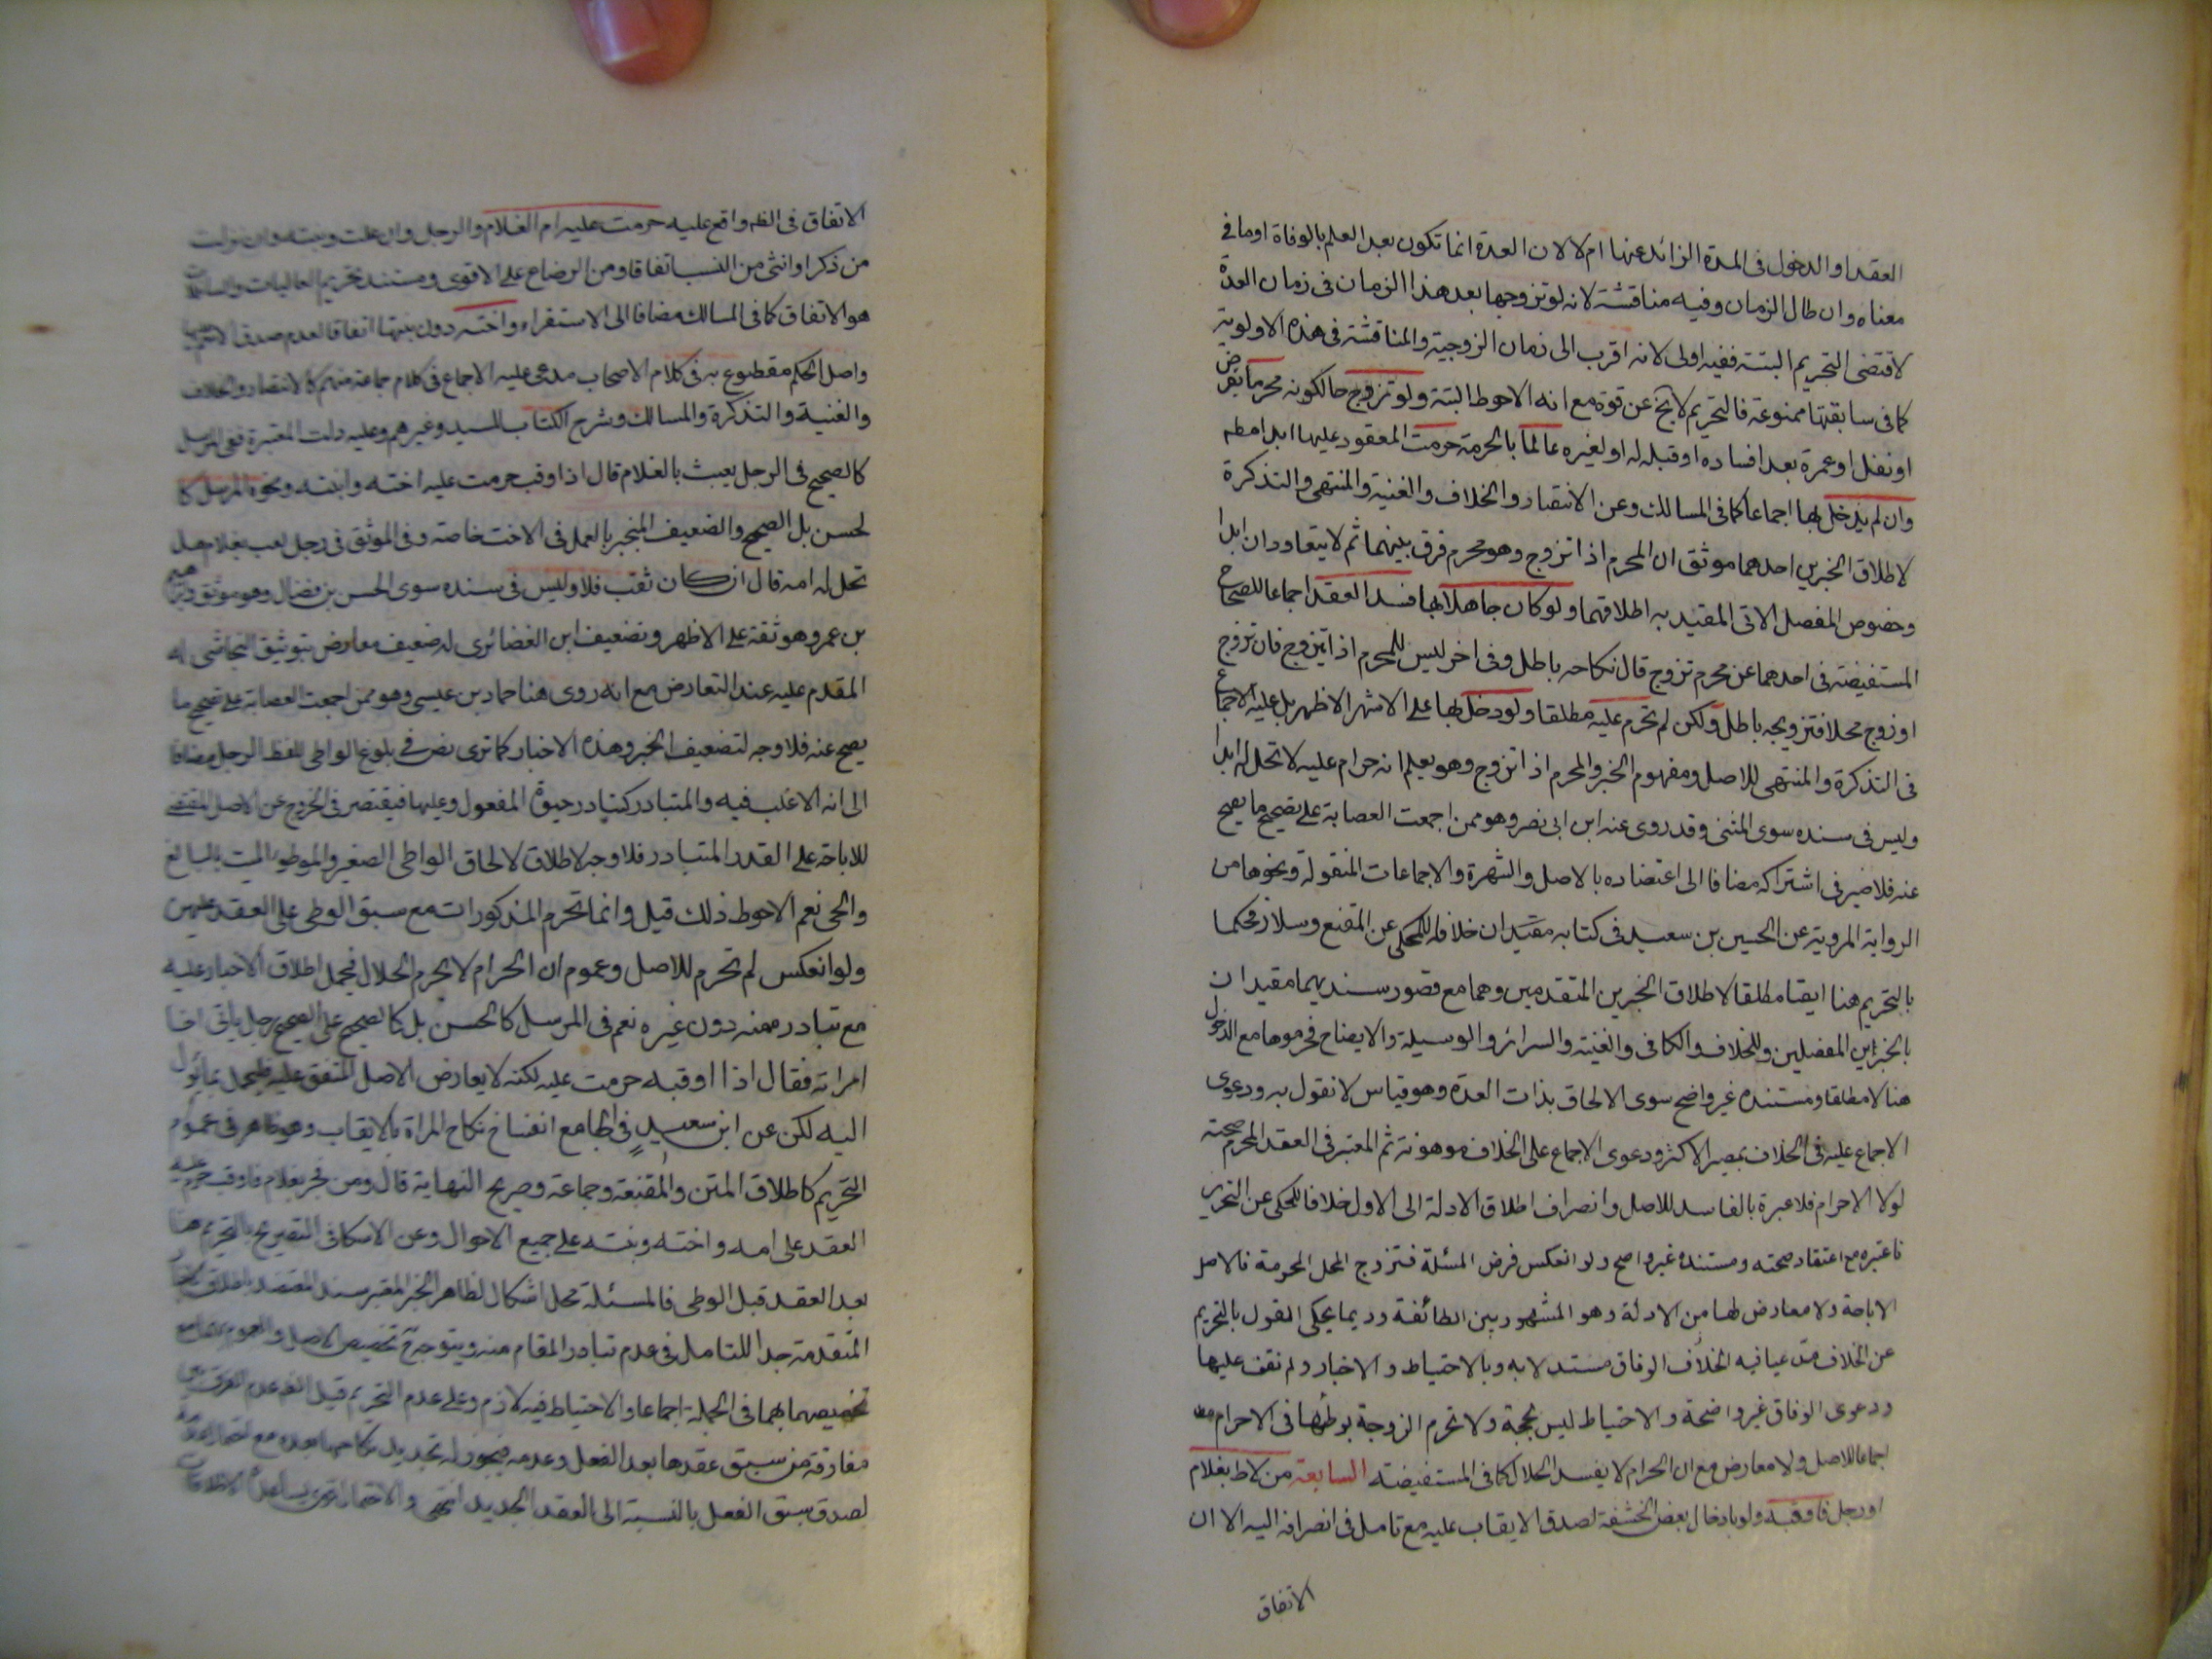 العقد او الدخول فى المدة الزائد عنها ام لا لان العدة انما تكون بعد العلم بالوفاة او ما فى
معناه وان طال الزمان وفيه مناقشة لانه لو تزوجها بعد هذا الزمان فى زمان العدة
لاقتضى التحريم البتة ففيه اولى لانه اقرب الى زمان الزوجية والمناقشة فى هذه الاولوية
كما فى سابقتها ممنوعة فالتحريم لا يخ عن قوة مع انه الاحوط البتة ولو تزوج حالكونه محرما بفرض
او نفل او عمرة بعد افساده او قبله له او لغيره عالما بالحرمة حرمت المعقود عليها ابدا مطه
وان لم يدخل بها اجماعا كما فى المسالك وعن الانتصار والخلاف والغنية والمنتهى والتذكرة
لاطلاق الخبرين احدهما موثق ان المحرم اذا تزوج وهو محرم فرق بينهما ثم لا يتعاودان ابدا
وخصوص المفصل الاتى المقيد به اطلاقهما ولو كان جاهلا بها فسد العقد اجماعا للصحاح
المستفيضة فى احدهما عن محرم تزوج قال نكاحه باطل وفى اخر ليس للمحرم اذا يتزوج فان تزوج
او زوج محلا فتزويجه باطل ولكن لم تحرم عليه مطلقا ولو دخل بها على الاشهر الاظهر بل عليه الاجماع
فى التذكرة والمنتهى للاصل ومفهوم الخبر والمحرم اذا تزوج وهو يعلم انه حرام عليه لا تحل له ابدا
وليس فى سنده سوى المثنى وقد روى عنه ابن ابى نصر وهو ممن اجمعت العصابة على تصحيح ما يصح
عنه فلا ضير فى اشتراكه مضافا الى اعتضاده بالاصل والشهرة والاجماعات المنقولة ونحوها من
الرواية المروية عن الحسين بن سعيد فى كتابه مقيدان خلافا للمحكى عن المقنع وسلار فحكما
بالتحريم هنا ايضا مطلقا لاطلاق الخبرين المتقدمين وهما مع قصور سنديهما مقيدان
بالخبرين المفصلين وللخلاف والكافى والغنية والسرائر والوسيلة والايضاح فحرموها مع الدخول
هنا لا مطلقا ومستنده غير واضح سوى الالحاق بذات العدة وهو قياس لا نقول به ودعوى
الاجماع عليه فى الخلاف بمصير الاكثر ودعوى الاجماع على الخلاف موهونة ثم المعتبر فى العقد المحرم صحته
لولا الاحرام فلا عبرة بالفاسد للاصل وانصراف اطلاق الادلة الى الاول خلافا للمحكى عن التحرير
فاعتبره مع اعتقاد صحته ومستنده غير واضح ولو انعكس فرض المسئلة فتزوج المحل المحرمة فالاصل
الاباحة ولا معارض لها من الادلة وهو المشهور بين الطائفة وربما يحكى القول بالتحريم
عن الخلاف مدعيا فيه الوفاق مستدلا به وبالاحتياط والاخبار ولم نقف عليها
ودعوى الوفاق غير واضحة والاحتياط ليس بحجة ولا تحرم الزوجة بوطئها فى الاحرام مطا
اجماعا للاصل ولا معارض مع ان الحرام لا يفسد الحلال كما فى المستفيضة السابعة من لاط بغلام
او رجل فاوقبه ولو بادخال بعض الحشفة لصدق الايقاب عليه مع تامل فى انصرافه اليه الا ان
الاتفاق
الاتفاق فى الظه واقع عليه حرمت عليه ام الغلام والرجل وان علت وبنته وان نزلت
من ذكر او انثى من النسب اتفاقا ومن الرضاع على الاقوى ومستند تحريم العاليات
هو الاتفاق كما فى المسالك مضافا الى الاستقراء واخته دون بنتها اتفاقا لعدم صدق
واصل الحكم مقطوع به فى كلام الاصحاب مدعى عليه الاجماع فى كلام جماعة منهم كالانتصار والخلاف
والغنية والتذكرة والمسالك وشرح الكتاب للسيد وغيرهم وعليه دلت المعتبرة ففى المرسل
كالصحيح فى الرجل يعبث بالغلام قال اذا اوقب حرمت عليه اخته وابنته ونحوه المرسل كا
لحسن بل الصحيح والضعيف المنجبر بالعمل فى الاخت خاصة وفى الموثق فى رجل لعب بغلام هل
تحل له امه قال ان كان ثقب فلا وليس فى سنده سوى الحسن بن فضال وهو موثق
بن عمر وهو ثقة على الاظهر وتضعيف ابن الغضائرى له ضعيف معارض بتوثيق النجاشى له
المقدم عليه عند التعارض مع انه روى هنا حماد بن عيسى وهو ممن اجمعت العصابة على تصحيح ما
يصح عنه فلا وجه لتضعيف الخبر وهذه الاخبار كما ترى نص فى بلوغ الواطى للفظ الرجل مضافا
الى انه الاغلب فيه والمتبادر كتبادر حيوة المفعول وعليها فيقتصر فى الخروج عن الاصل المقتضى
للاباحة على القدر المتبادر فلا وجه لاطلاق لالحاق الواطى الصغير والموطوء الميت بالبالغ
والحى نعم الاحوط ذلك قيل وانما تحرم المذكورات مع سبق الوطى على العقد عليهن
ولو انعكس لم تحرم للاصل وعموم ان الحرام لا يحرم الحلال فيحمل اطلاق الاخبار عليه
مع تبادره منه دون غيره نعم فى المرسل كالحسن بل كالصحيح على الصحيح رجل ياتى اخا
امراته فقال اذا اوقبه حرمت عليه لكنه لا يعارض الاصل المتفق عليه
اليه لكن عن ابن سعيد فى الجامع انفساخ نكاح المراة بالايقاب وهو ظاهر فى عموم
التحريم كاطلاق المتن والمقنعة وجماعة وصريح النهاية قال ومن فجر بغلام فاوقب حرم عليه
العقد على امه واخته وبنته على جميع الاحوال وعن الاسكافى التصريح بالتحريم هنا
بعد العقد قبل الوطى فالمسئلة محل اشكال لظاهر الخبر المعتبر سند المعتضد باطلاق
المتقدمة جدا للتامل فى عدم تبادر المقام منه ويتوجه تخصيص الاصل والعموم
تخصيصهما بهما فى الجملة اجماعا والاحتياط فيه لازم وعلى عدم التحريم قيل الظ عدم الفرق
مفارقة من سبق عقدها بعد الفعل وعدمه فيجوز له تجديد نكاحها بعده مع احتمال
لصدق سبق الفعل بالنسبة الى العقد الجديد انتهى والاحتمال